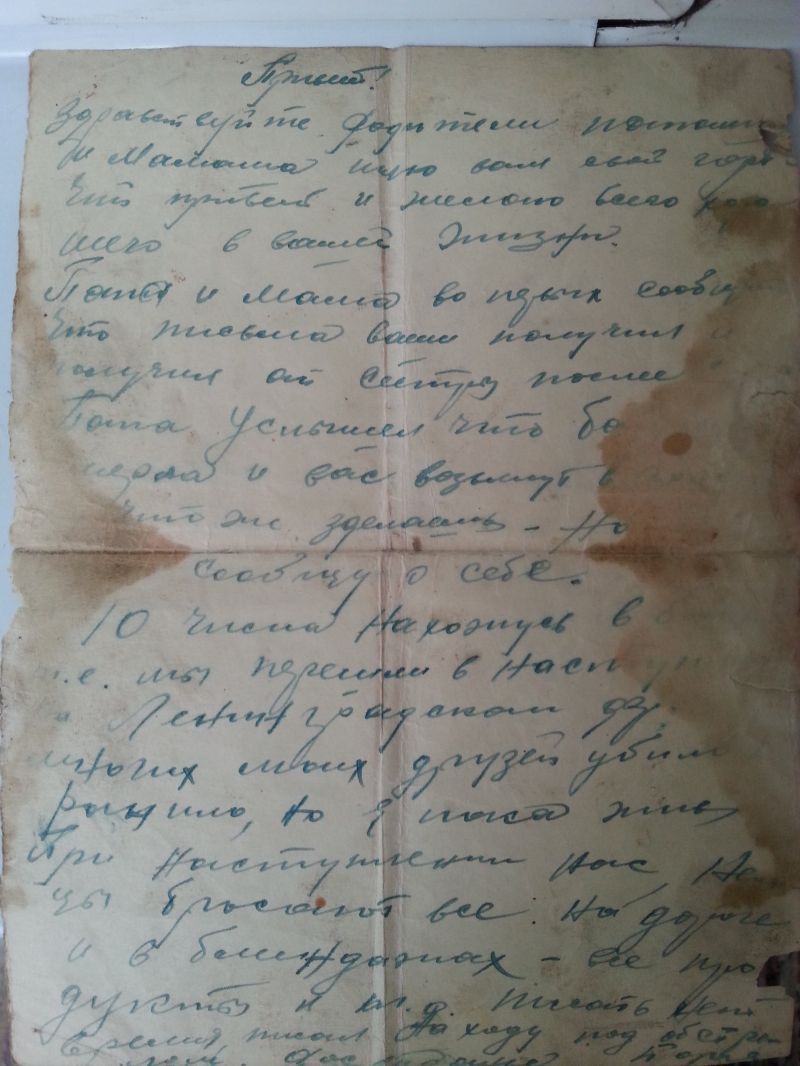 Привет!
Здравствуйте родители папаша
и Мамаша шлю вам свой горя
чий привет и желаю всего хоро
шего в вашей жизни.
Папа и Мама во первых сообщу
что письма ваши получил и
получил от сестры после
Папа Услышал что бо
и вас возьмут в
что ж зделаешь - Но
сообщу о себе.
10 числа Нахожусь в
т.е. мы перешли в наступ
на Ленинградском фр.
многих моих друзей убило
ранило, но я пока жив
При наступлении нас, Нем
цы бросают все на дороге
и в блиндажах - все про
дукты и т.д. писать нет
время, писал На ходу под обстре
лом.